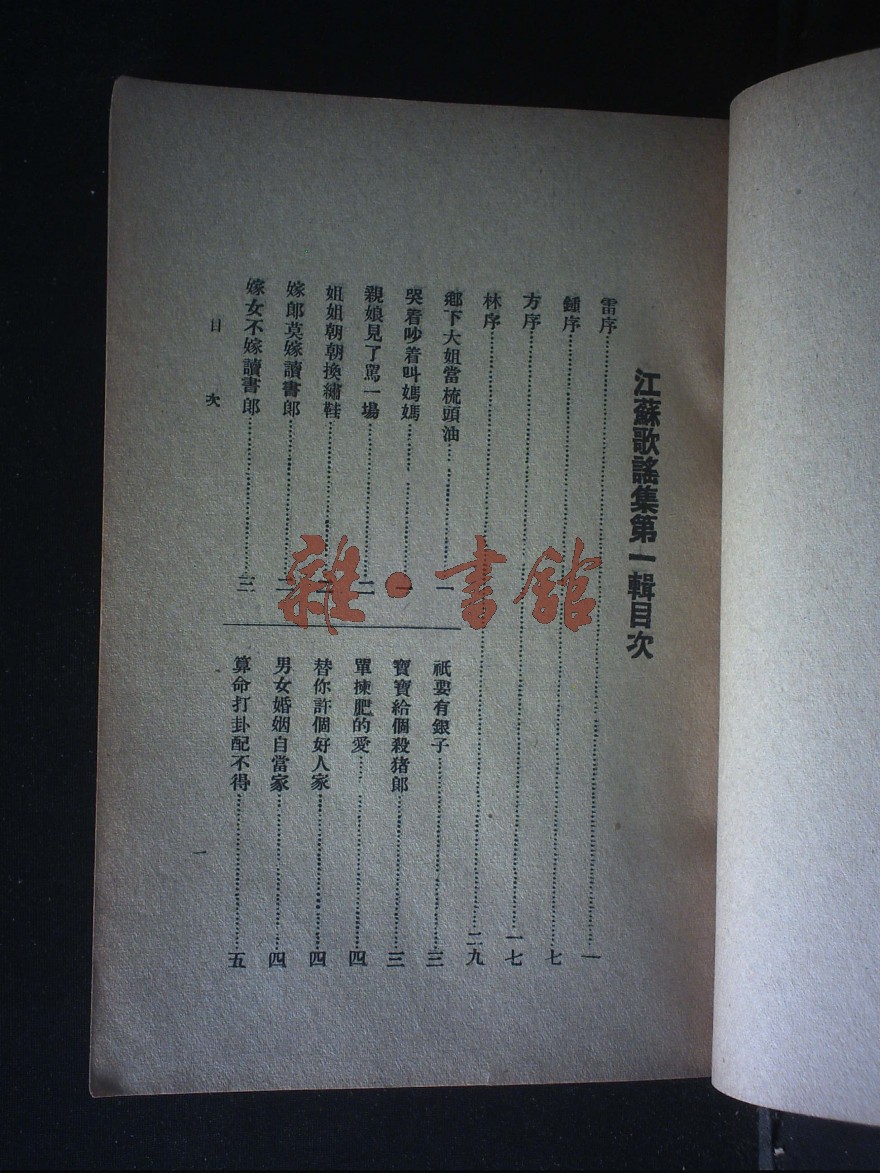 江蘇歌謠集第一輯目次
雷序 一
鍾序 七
方序 一七
林序 二九
鄉下大姐當梳頭油 一
哭着吵着叫媽媽 一
親娘見了罵一場 二
姐姐朝朝換繡鞋
嫁郎莫嫁讀書郎 二
嫁女不嫁讀書郎 三
祇要有銀子 三
寶寶給個殺猪郎 三
單揀肥的愛 四
替你許個好人家 四
男女婚姻自當家 四
算命打卦配不得 五
目次
一
雜·書館